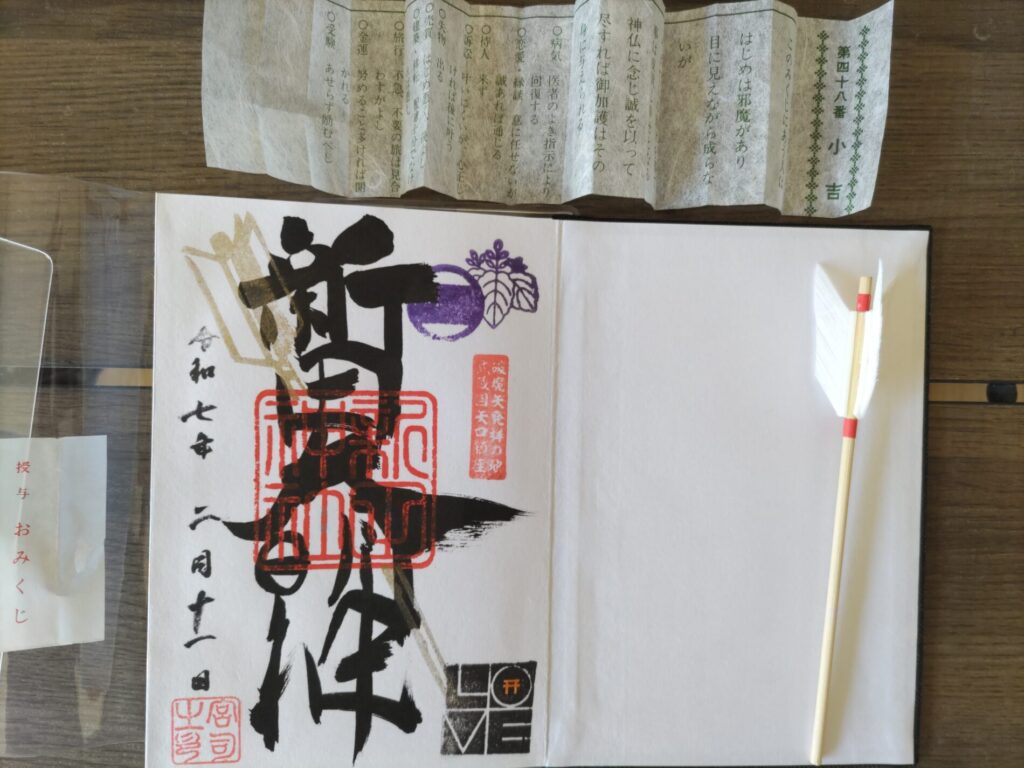 第四十八番 小吉
はじめは邪魔があり
目に見えながら成らな
いが
神仏に念じ誠を以って
尽すれば御加護はその
○病気 医者のよき指示により
回復する
誠あれば通じる
○待人 来ず
○訴訟
ければ後に叶う
○失物 出る
○売買
○旅行 不急、不要の旅は見合
わすがよし
○金運 努めることをすれば開
かれる
○受験 あせらず励むべし
破魔矢発祥の地
武蔵国矢口鎮座
新田神社
新田神社
令和七年 二月十一日
宮司之印
LOVE
授与 おみくじ